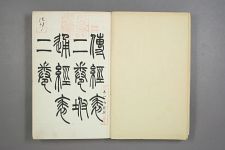 傳經表
二卷坿
通經表
二卷